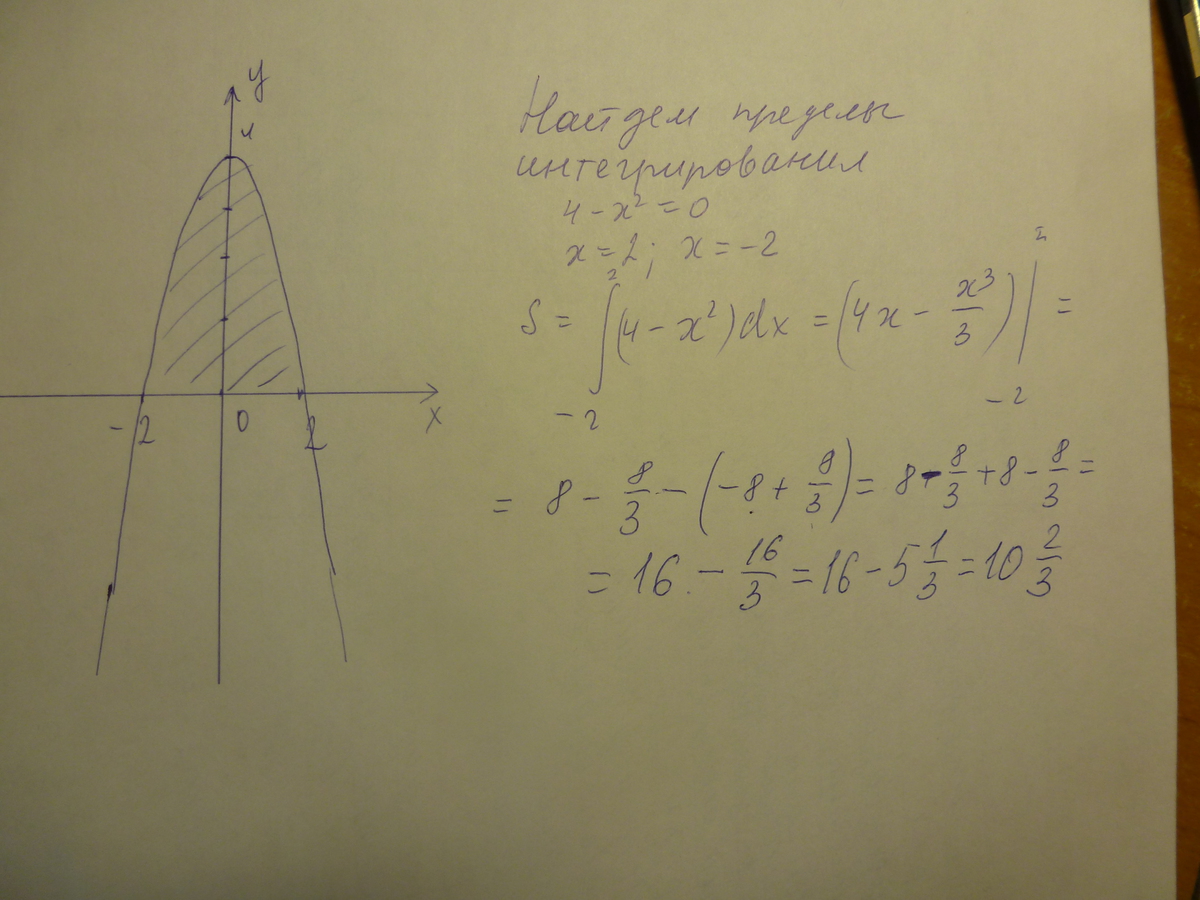 y
4
-2 0 2 x
Найдем пределы
интегрирования
4 - x² = 0
x = 2; x = -2
S = ∫₋₂² (4 - x²) dx = (4x - x³/3) |₋₂² =
= 8 - 8/3 - (-8 + 8/3) = 8 - 8/3 + 8 - 8/3 =
= 16 - 16/3 = 16 - 5 1/3 = 10 2/3